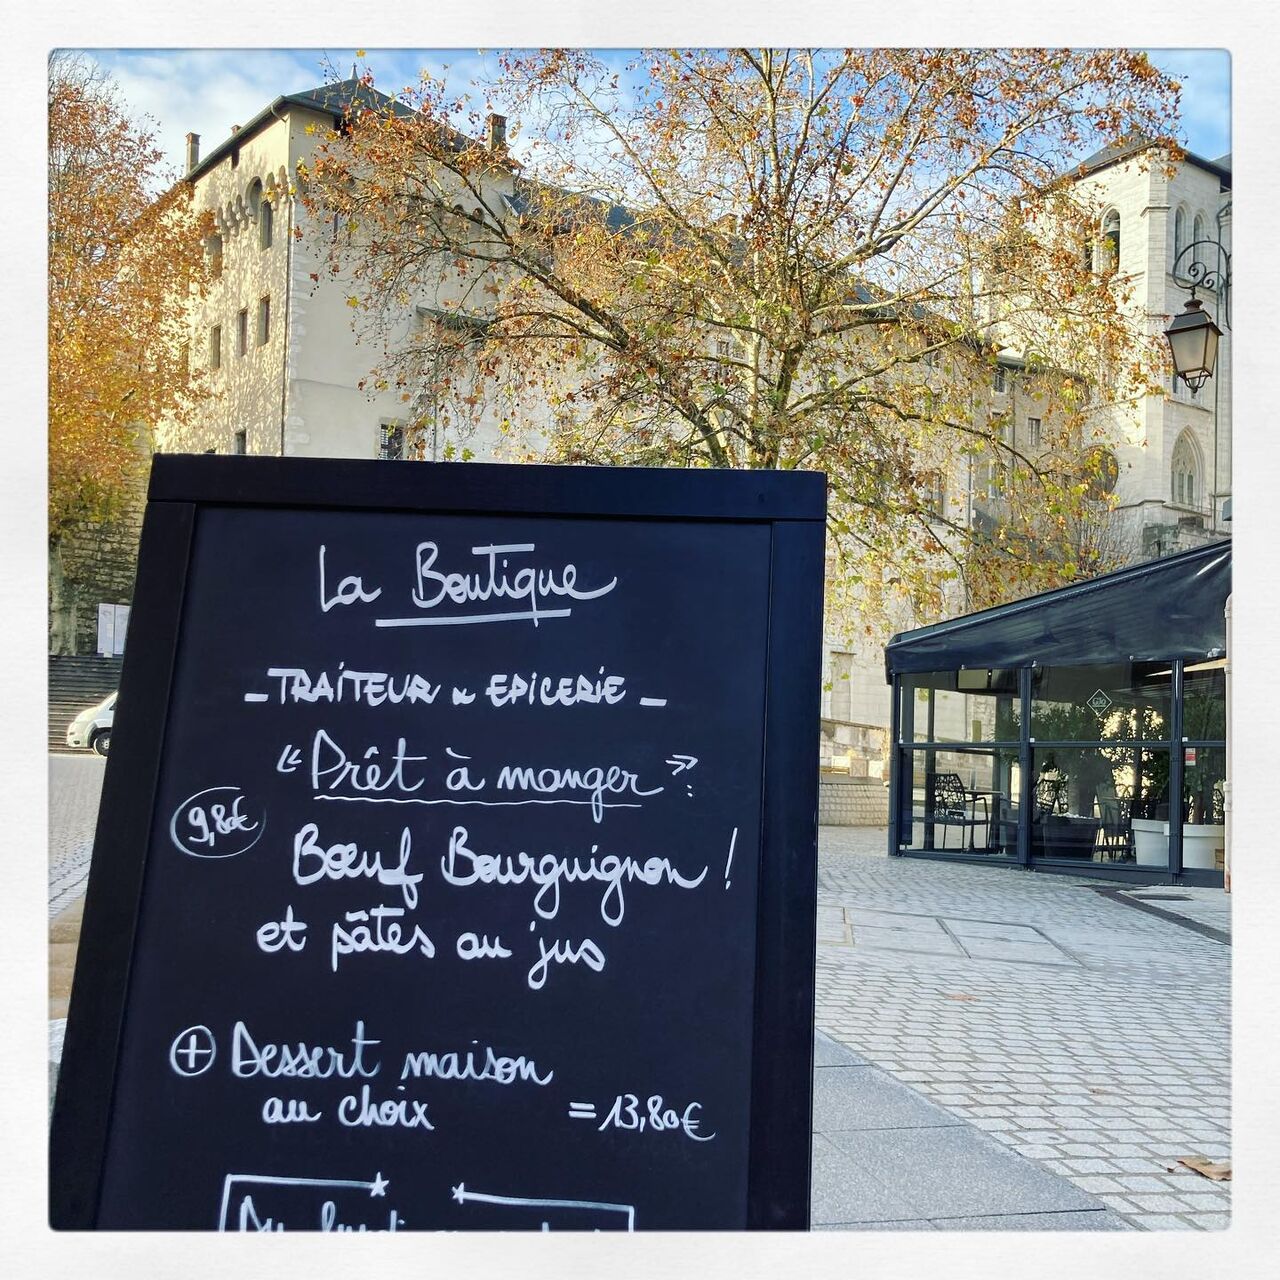 La Boutique
- TRAITEUR & EPICERIE -
9,80€
"Prêt à manger":
Bœuf Bourguignon !
et pâtes au jus
+ Dessert maison
au choix = 13,80€
Du lundi au